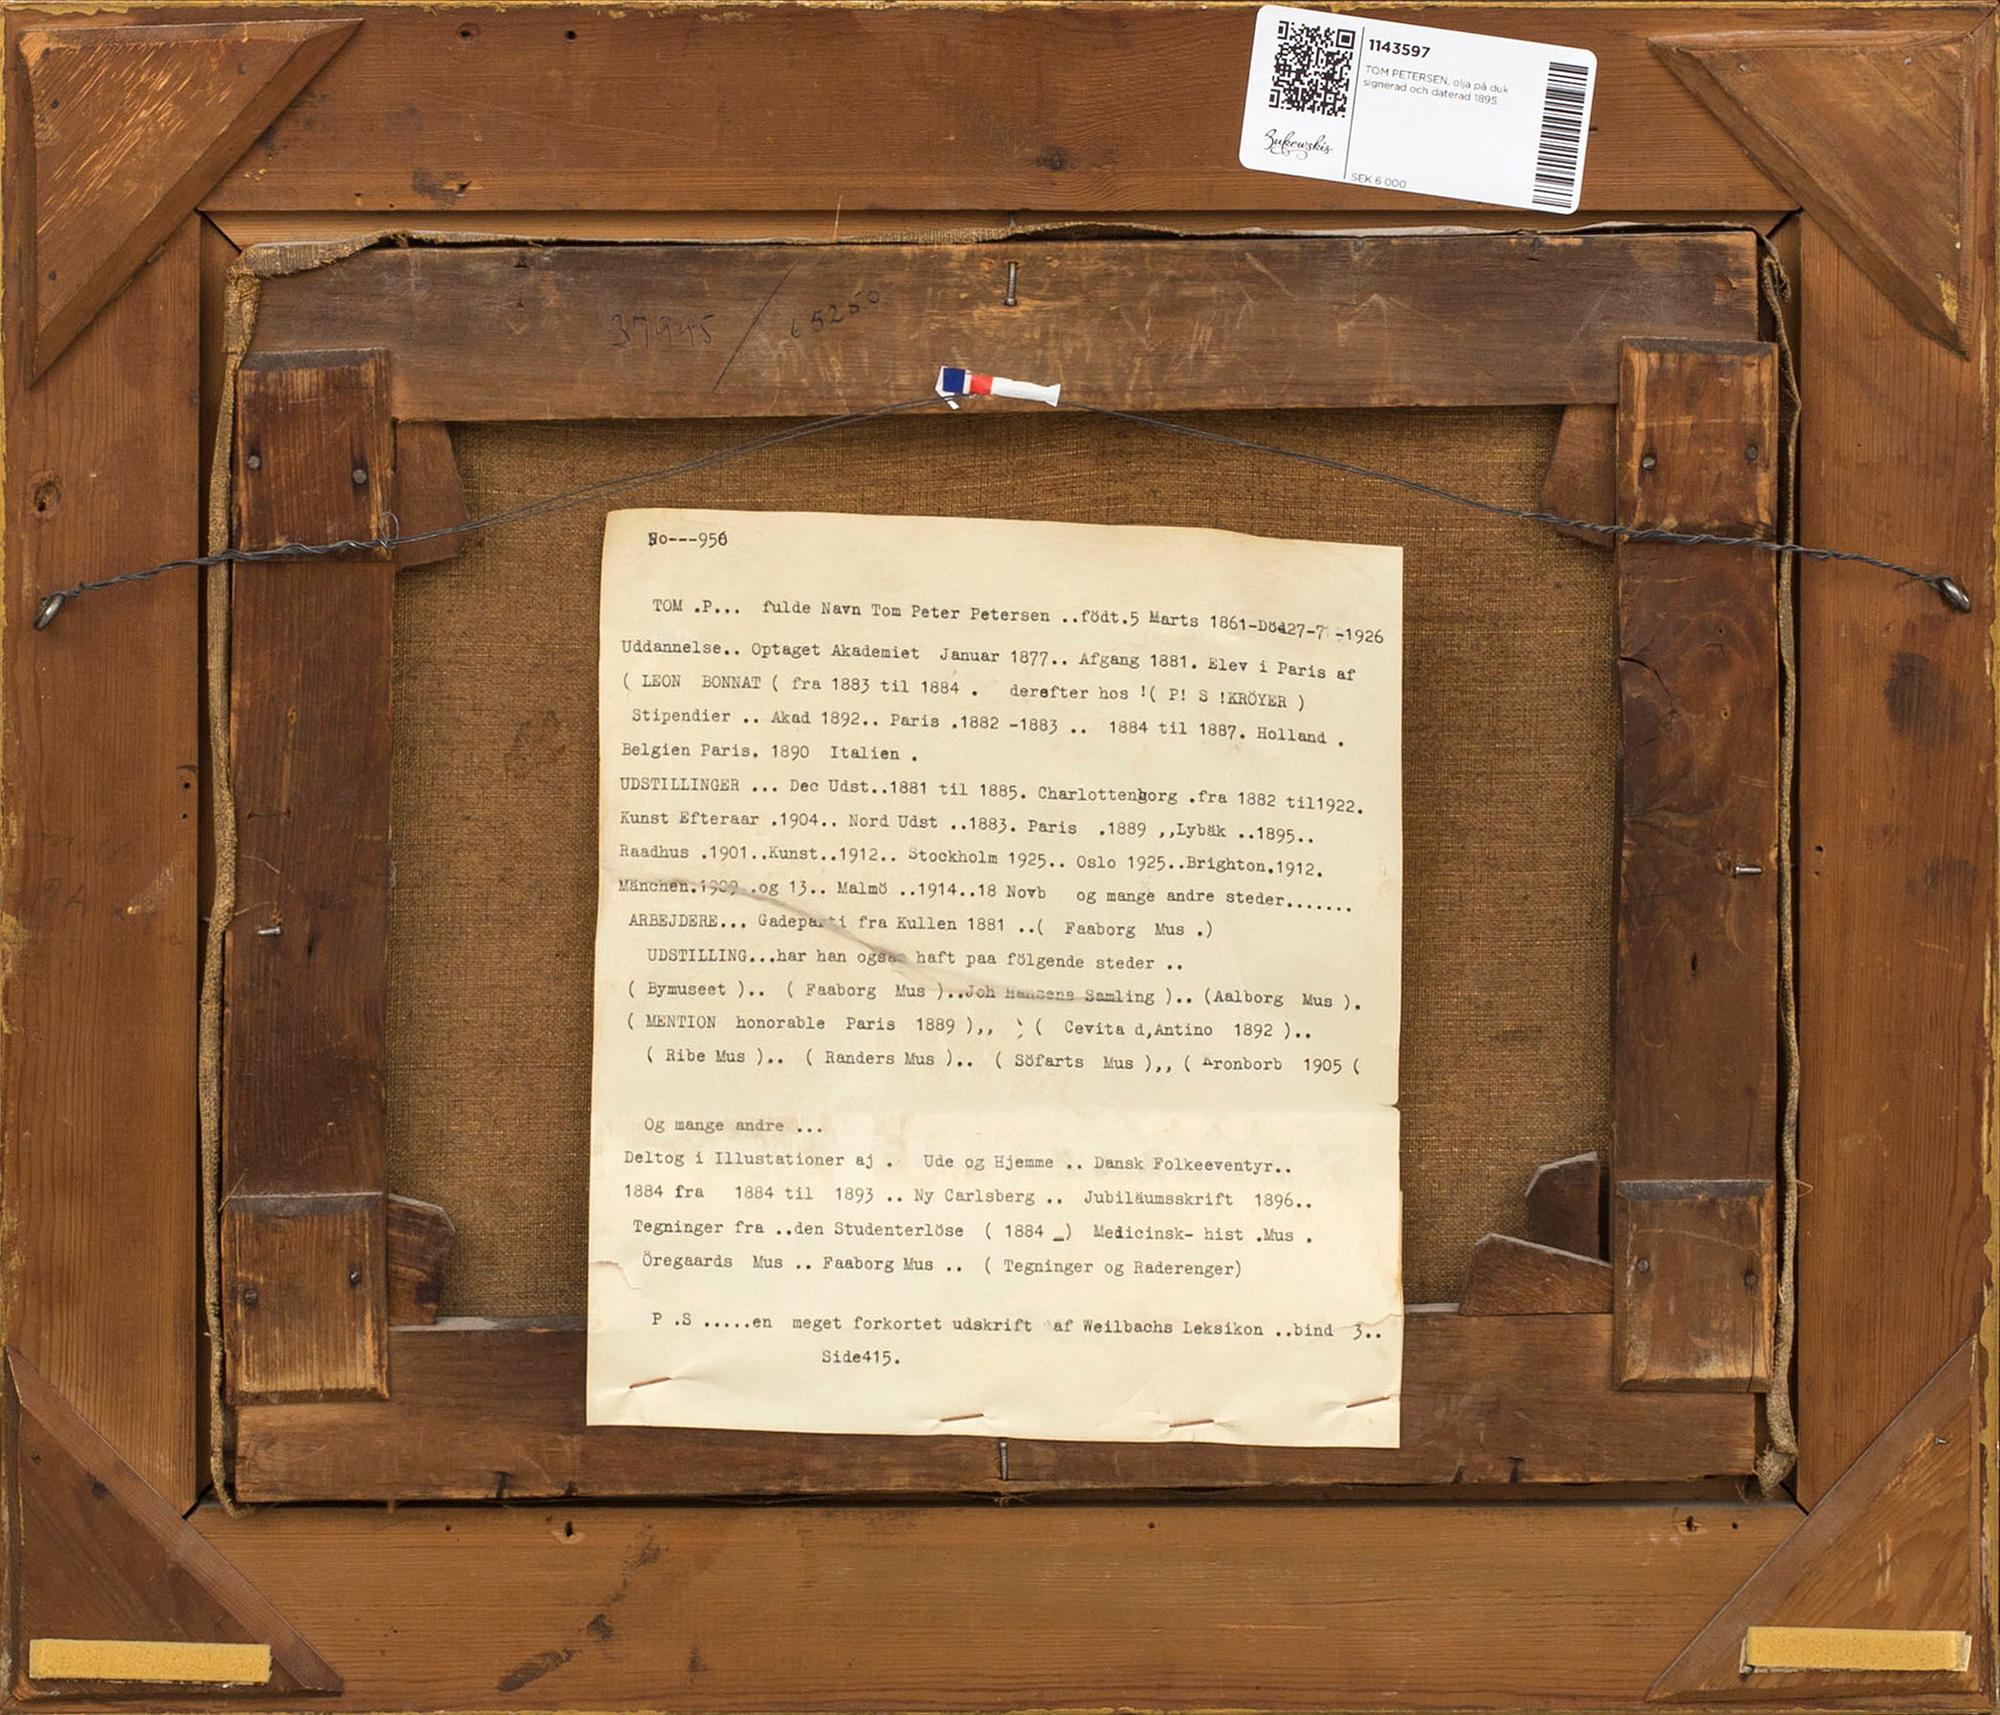 1143597
TOM PETERSEN, olja på duk
signerad och daterad 1895.
Bukowskis
SEK 6 000
37945 / 65250
No---956
TOM .P... fulde Navn Tom Peter Petersen ..födt.5 Marts 1861-Död27-7 -1926
Uddannelse.. Optaget Akademiet Januar 1877.. Afgang 1881. Elev i Paris af
( LEON BONNAT ( fra 1883 til 1884 . derefter hos !( P! S !KRÖYER )
Stipendier .. Akad 1892.. Paris .1882 -1883 .. 1884 til 1887. Holland .
Belgien Paris. 1890 Italien .
UDSTILLINGER ... Dec Udst..1881 til 1885. Charlottenborg .fra 1882 til1922.
Kunst Efteraar .1904.. Nord Udst ..1883. Paris .1889 ,,Lybäk ..1895..
Raadhus .1901..Kunst..1912.. Stockholm 1925.. Oslo 1925..Brighton.1912.
Mänchen.1909 .og 13.. Malmö ..1914..18 Novb og mange andre steder.......
ARBEJDERE... Gadeparti fra Kullen 1881 ..( Faaborg Mus .)
UDSTILLING...har han ogsaa haft paa fölgende steder ..
( Bymuseet ).. ( Faaborg Mus )..Joh Hansens Samling ).. (Aalborg Mus ).
( MENTION honorable Paris 1889 ),, ( Cevita d,Antino 1892 )..
( Ribe Mus ).. ( Randers Mus ).. ( Söfarts Mus ),, ( Kronborb 1905 (
Og mange andre ...
Deltog i Illustationer aj . Ude og Hjemme .. Dansk Folkeeventyr..
1884 fra 1884 til 1893 .. Ny Carlsberg .. Jubiläumsskrift 1896..
Tegninger fra ..den Studenterlöse ( 1884 _) Medicinsk- hist .Mus .
Öregaards Mus .. Faaborg Mus .. ( Tegninger og Raderenger)
P .S .....en meget forkortet udskrift af Weilbachs Leksikon ..bind 3..
Side415.